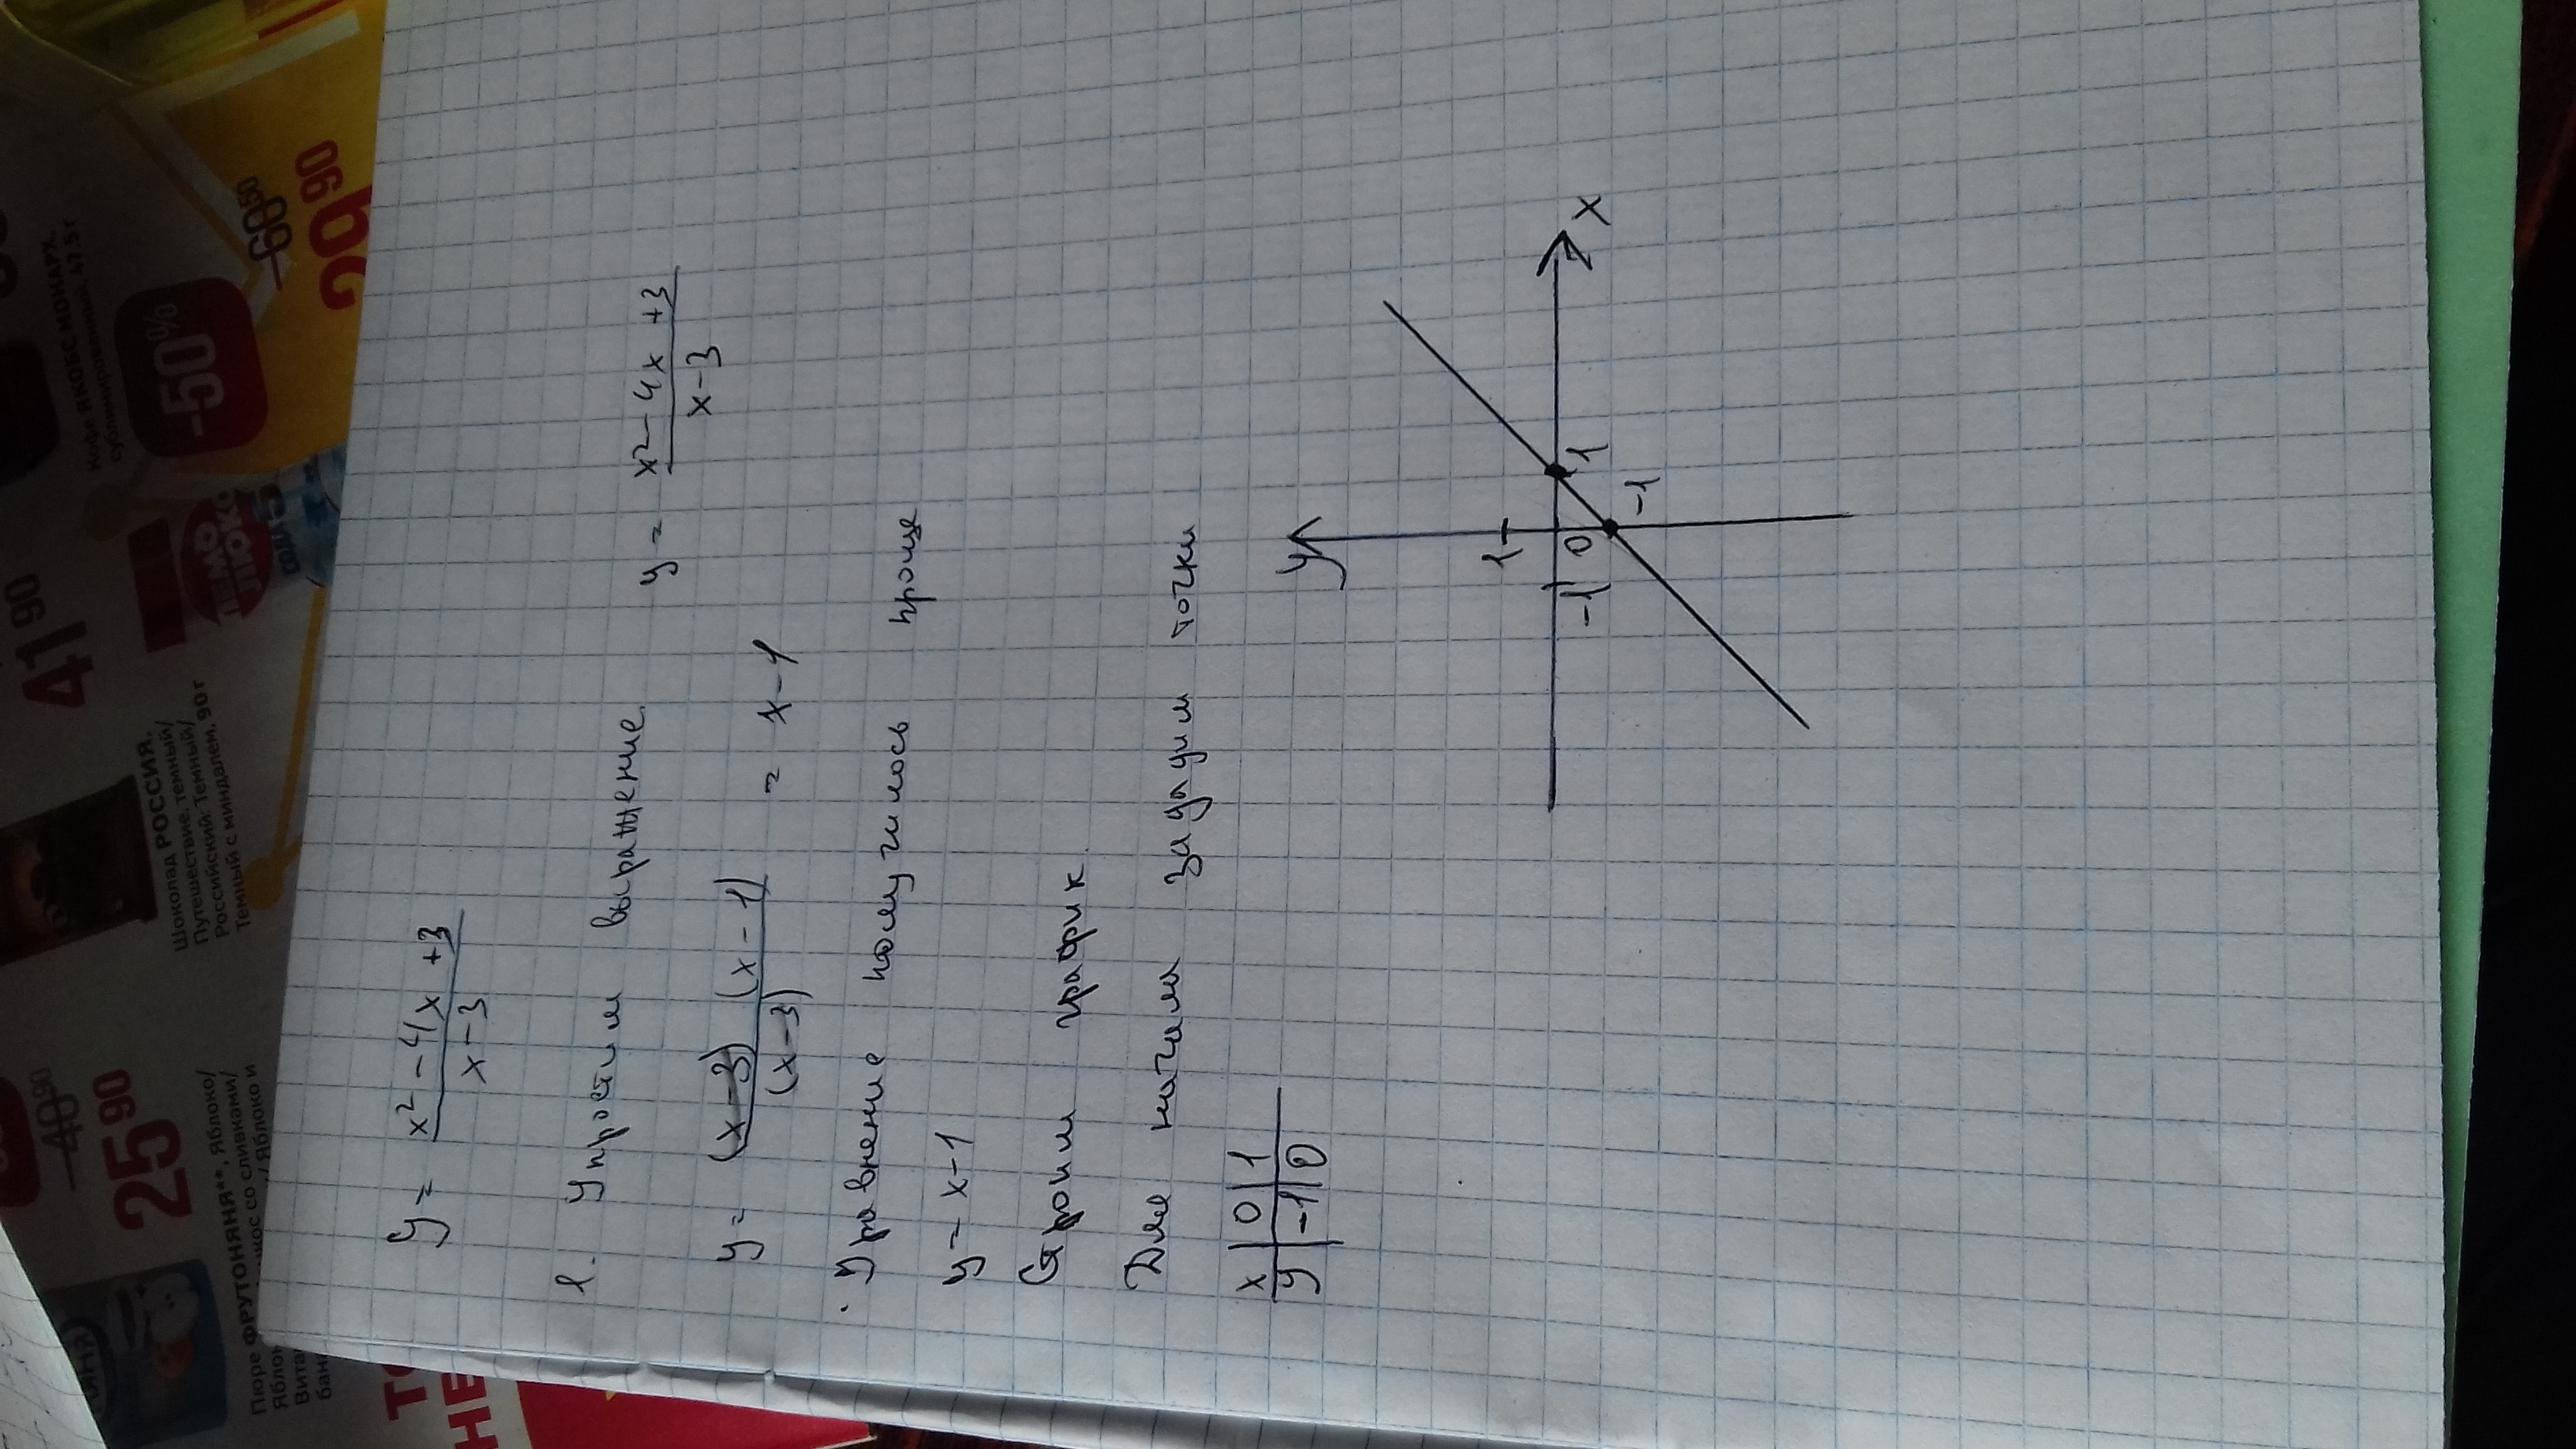 y = x² - 4x + 3 / x - 3
1. Упростим выражение. y = x² - 4x + 3 / x - 3
y = (x - 3)(x - 1) / (x - 3) = x - 1
Уравнение получилось проще
y = x - 1
Строим график.
Для начала зададим точки
x | 0 | 1
y | -1 | 0
y
1
-1 0 1 x
-1
41 90
-50%
60 50
29 90
Кофе ЯКОБС МОНАРХ,
сублимированный, 47,5 г
Шоколад РОССИЯ.
Путешествие. темный/
Российский: Темный/
Темный с миндалем, 90 г
40 90
25 90
Пюре ФРУТОНЯНЯ**, Яблоко/